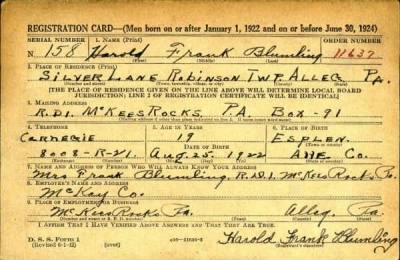 REGISTRATION CARD—(Men born on or after January 1, 1922 and on or before June 30, 1924)
SERIAL NUMBER 1. NAME (Print) ORDER NUMBER
N. 158 Harold Frank Blumling 11637
(First) (Middle) (Last)
2. PLACE OF RESIDENCE (Print)
SILVER LANE ROBINSON TWP. ALLEG. PA.
[THE PLACE OF RESIDENCE GIVEN ON THE LINE ABOVE WILL DETERMINE LOCAL BOARD
JURISDICTION; LINE 2 OF REGISTRATION CERTIFICATE WILL BE IDENTICAL]
3. MAILING ADDRESS
R.D.1. McKEES ROCKS. P.A. BOX-91
4. TELEPHONE 5. AGE IN YEARS 6. PLACE OF BIRTH
CARNEGIE 19 ESPLEN
DATE OF BIRTH
8008-R-21. Aug. 25. 1922 Co.
7. NAME AND ADDRESS OF PERSON WHO WILL ALWAYS KNOW YOUR ADDRESS
Mrs Frank Blumling R.D.1. McKees Rocks Pa.
8. EMPLOYER'S NAME AND ADDRESS
McKay Co.
9. PLACE OF EMPLOYMENT OR BUSINESS
McKees Rocks Pa. Alleg. Pa.
I AFFIRM THAT I HAVE VERIFIED ABOVE ANSWERS AND THAT THEY ARE TRUE.
D. S. S. FORM 1
(Revised 6-1-42) Harold Frank Blumling